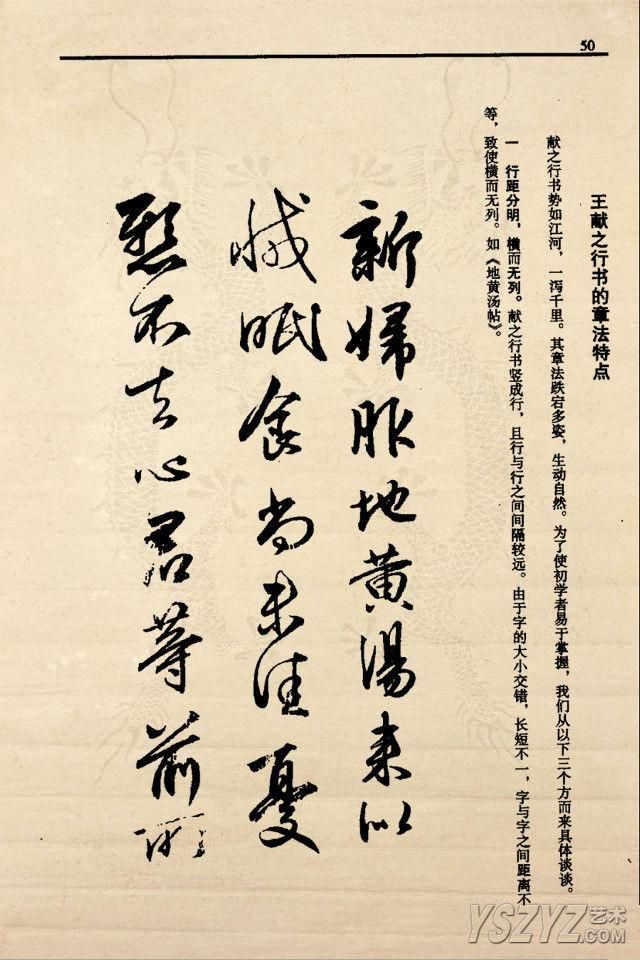 50
王献之行书的章法特点
献之行书势如江河，一泻千里。其章法跌宕多姿，生动自然。为了使初学者易于掌握，我们从以下三个方而来具体谈谈。
一　行距分明，横而无列。献之行书竖成行，且行与行之间间隔较远。由于字的大小交错，长短不一，字与字之间距离不
等，致使横而无列。如《地黄汤帖》。
新婦服地黄湯来似
減眠食尚未佳憂
懸不去心君等前所
YSZYZ艺术
.COM